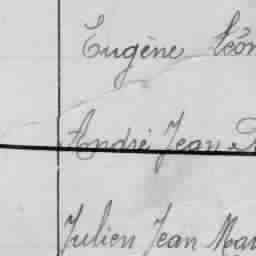 Eugène Léon
André Jean
Julien Jean Mar